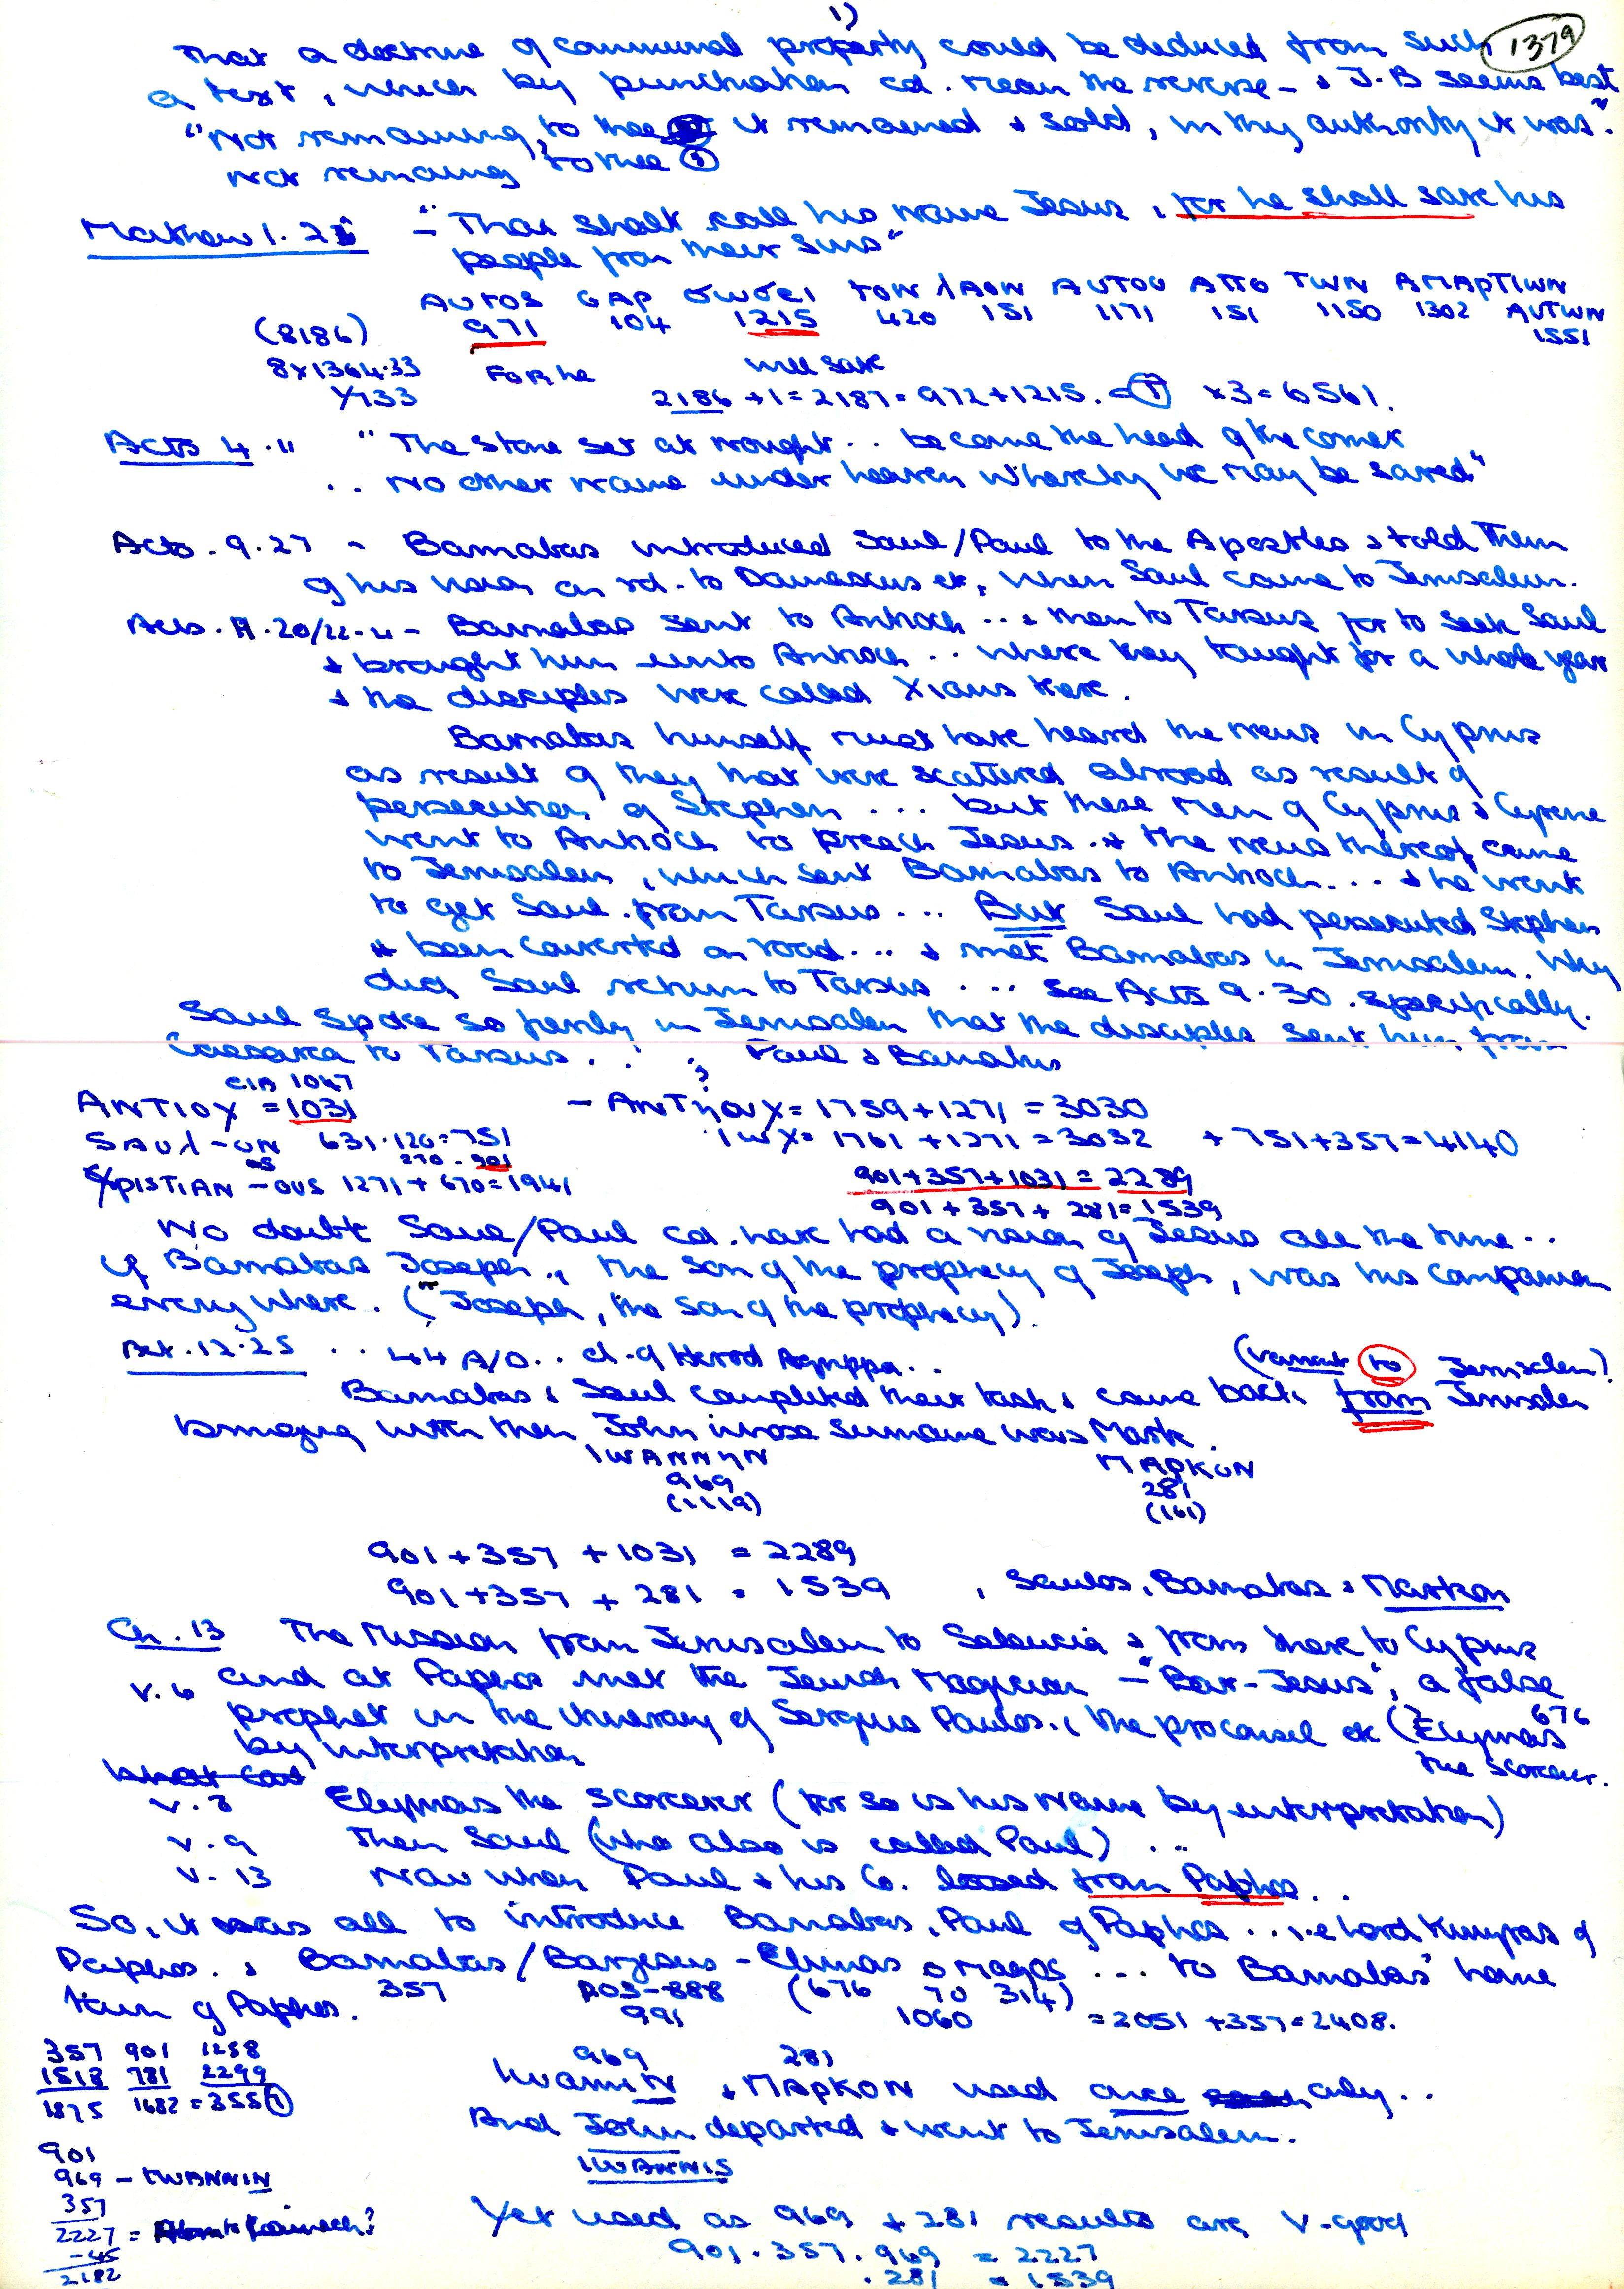 1)
1379
That a doctrine of communal property could be deduced from such
a text, which by punctuation cd. mean the reverse - & J.B seems best
"Not remaining, to thee it remained & sold, in thy authority it was".
Not remaining to thee ?
Mathew 1.21 - "Thou shalt call his name Jesus, for he shall save his
people from their sins"
AUTOS GAP σωσει TON λAON AUTOU AΠO TWN AMAPTIWN AUTWN
(8186) 971 104 1215 420 151 1171 151 1150 1302 1551
8x1364.33 For he will save
Y733 2186 +1 = 2187 = 972+1215. x3 = 6561.
Acts 4.11 "The stone set at nought.. become the head of the corner
.. no other name under heaven whereby we may be saved"
Acts. 9.27 - Barnabas introduced Saul/Paul to the Apostles & told them
of his vision on rd. to Damascus etc, when Saul came to Jerusalem.
Acts. 11.20/22-4 - Barnabas sent to Antioch ... & then to Tarsus for to seek Saul
& brought him unto Antioch .. where they taught for a whole year
& the disciples were called Xians there.
Barnabas himself must have heard the news in Cyprus
as result of they that were scattered abroad as result of
persecution of Stephen ... but these men of Cyprus & Cyrene
went to Antioch to preach Jesus .. & the news thereof came
to Jerusalem, which sent Barnabas to Antioch... & he went
to get Saul. from Tarsus ... But Saul had persecuted Stephen
& been converted on road... & met Barnabas in Jerusalem. Why
did Saul return to Tarsus .... See Acts 9.30. specifically.
Saul spoke so in Jerusalem that the disciples sent him from
Caesarea to Tarsus. . ? Paul & Barnabas
EIA 1047 ?
ANTIOX = 1031 - ANTηOUX = 1759+1271 = 3030
SAUλ-ON 631.120=751 IWX = 1761 +1271 = 3032 + 751+357=4140
OS 270.901
XPISTIAN -OUS 1271+670=1941 901+357+1031 = 2289
901+357+ 281=1539
No doubt Saul/Paul cd. have had a vision of Jesus all the time..
if Barnabas Joseph., the son of the prophecy of Joseph, was his companion
everywhere. ("Joseph, the son of the prophecy).
Act.12.25 .. 44 A/D.. d. of Herod Agrippa.. (variant to Jerusalem?)
Barnabas & Saul completed their task & came back from Jerusalem
bringing with them John whose surname was Mark.
IWANNηN MAPKON
969 281
(1119) (161)
901+357 +1031 = 2289
901+357 + 281 = 1539 , Saulos, Barnabas & Markon
Ch. 13 The Mission from Jerusalem to Seleucia & from there to Cyprus
v. 6 and at Paphos met the Jewish Magician - "Bar-Jesus", a false
prophet in the itinerary of Sergius Paulos., the proconsul etc (? Elymas 676
by interpretation the Scorcerer.
v. 8 Elymas the scorcerer (for so is his name by interpretation)
v. 9 Then Saul (who also is called Paul) ..
v. 13 Now when Paul & his Co. loosed from Paphos..
So, it was all to introduce Barnabas, Paul of Paphos ... i.e Lord Kinyras of
Paphos. & Barnabas/Barjesus - Elimas o Magos ... to Barnabas' home
town of Paphos. 357 103-888 (676 70 314)
991 1060 = 2051 +357=2408.
357 901 1258
1518 781 2299
1875 1682 = 355(7)
969 281
IWANNIN & MAPKON used once only..
And John departed & went to Jerusalem.
IWANNIS
901
969 - IWANNIN
357
2227 =
-45
2182
Yet used as 969 & 281 results are v. good
901.357.969 = 2227
.281 = 1539